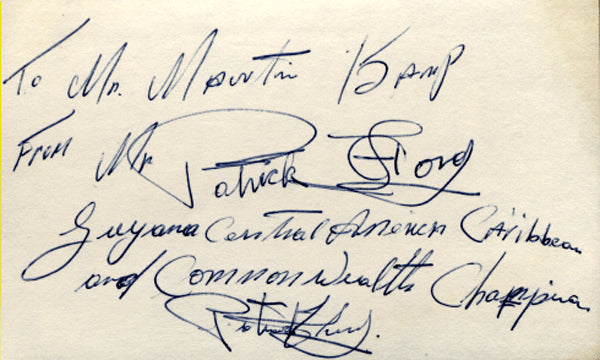 To Mr. Martin Kamp
From Mr Patrick Ford
Guyana Central America Caribbean
and Commonwealth Champion
Patrick Ford.